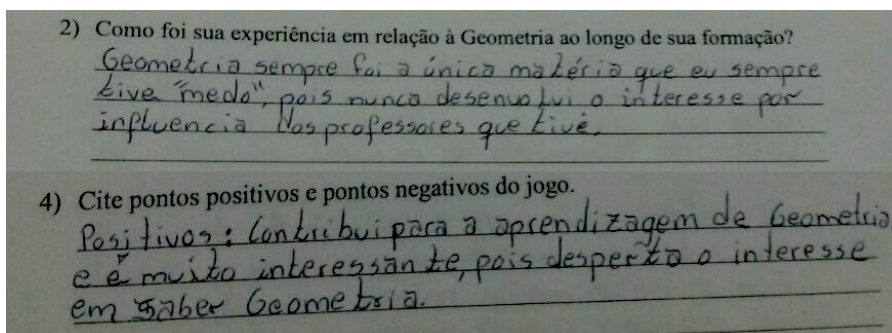 2) Como foi sua experiência em relação à Geometria ao longo de sua formação?
Geometria sempre foi a única matéria que eu sempre
tive "medo", pois nunca desenvolvi o interesse por
influencia dos professores que tive.
4) Cite pontos positivos e pontos negativos do jogo.
Positivos: Contribui para a aprendizagem de Geometria
e é muito interessante, pois desperta o interesse
em saber Geometria.